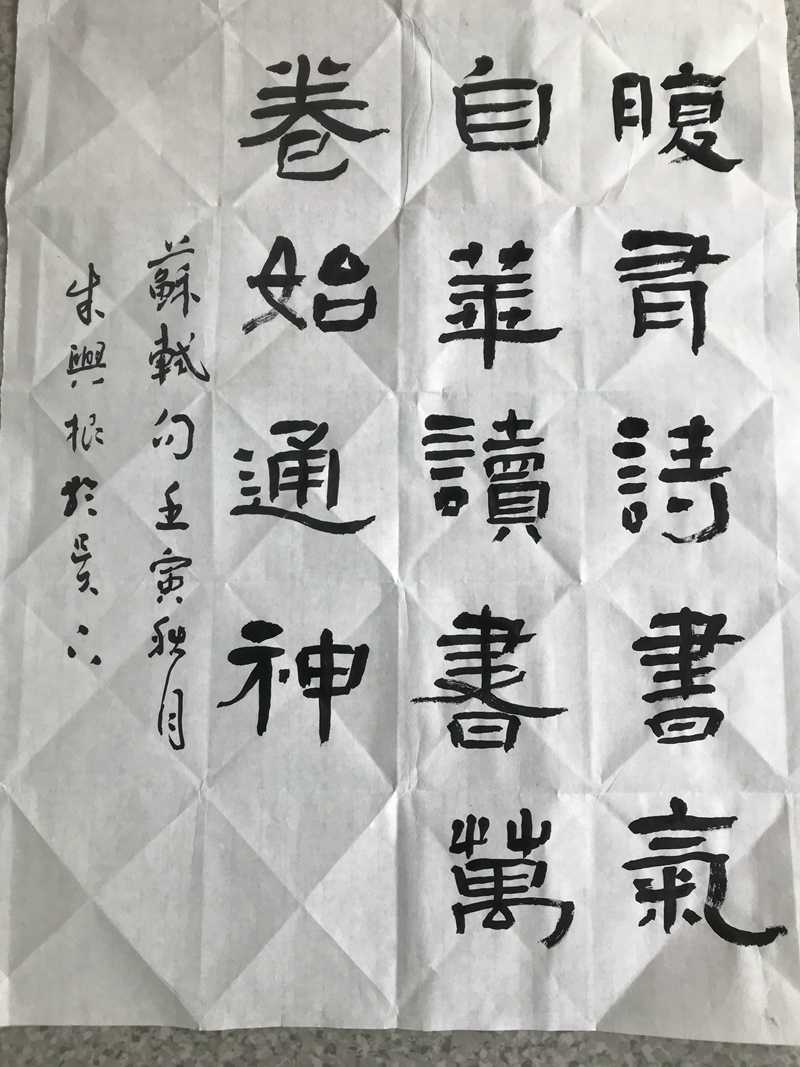 腹有詩書氣
自華讀書萬
卷始通神
蘇軾句壬寅秋月
朱興根於吳下